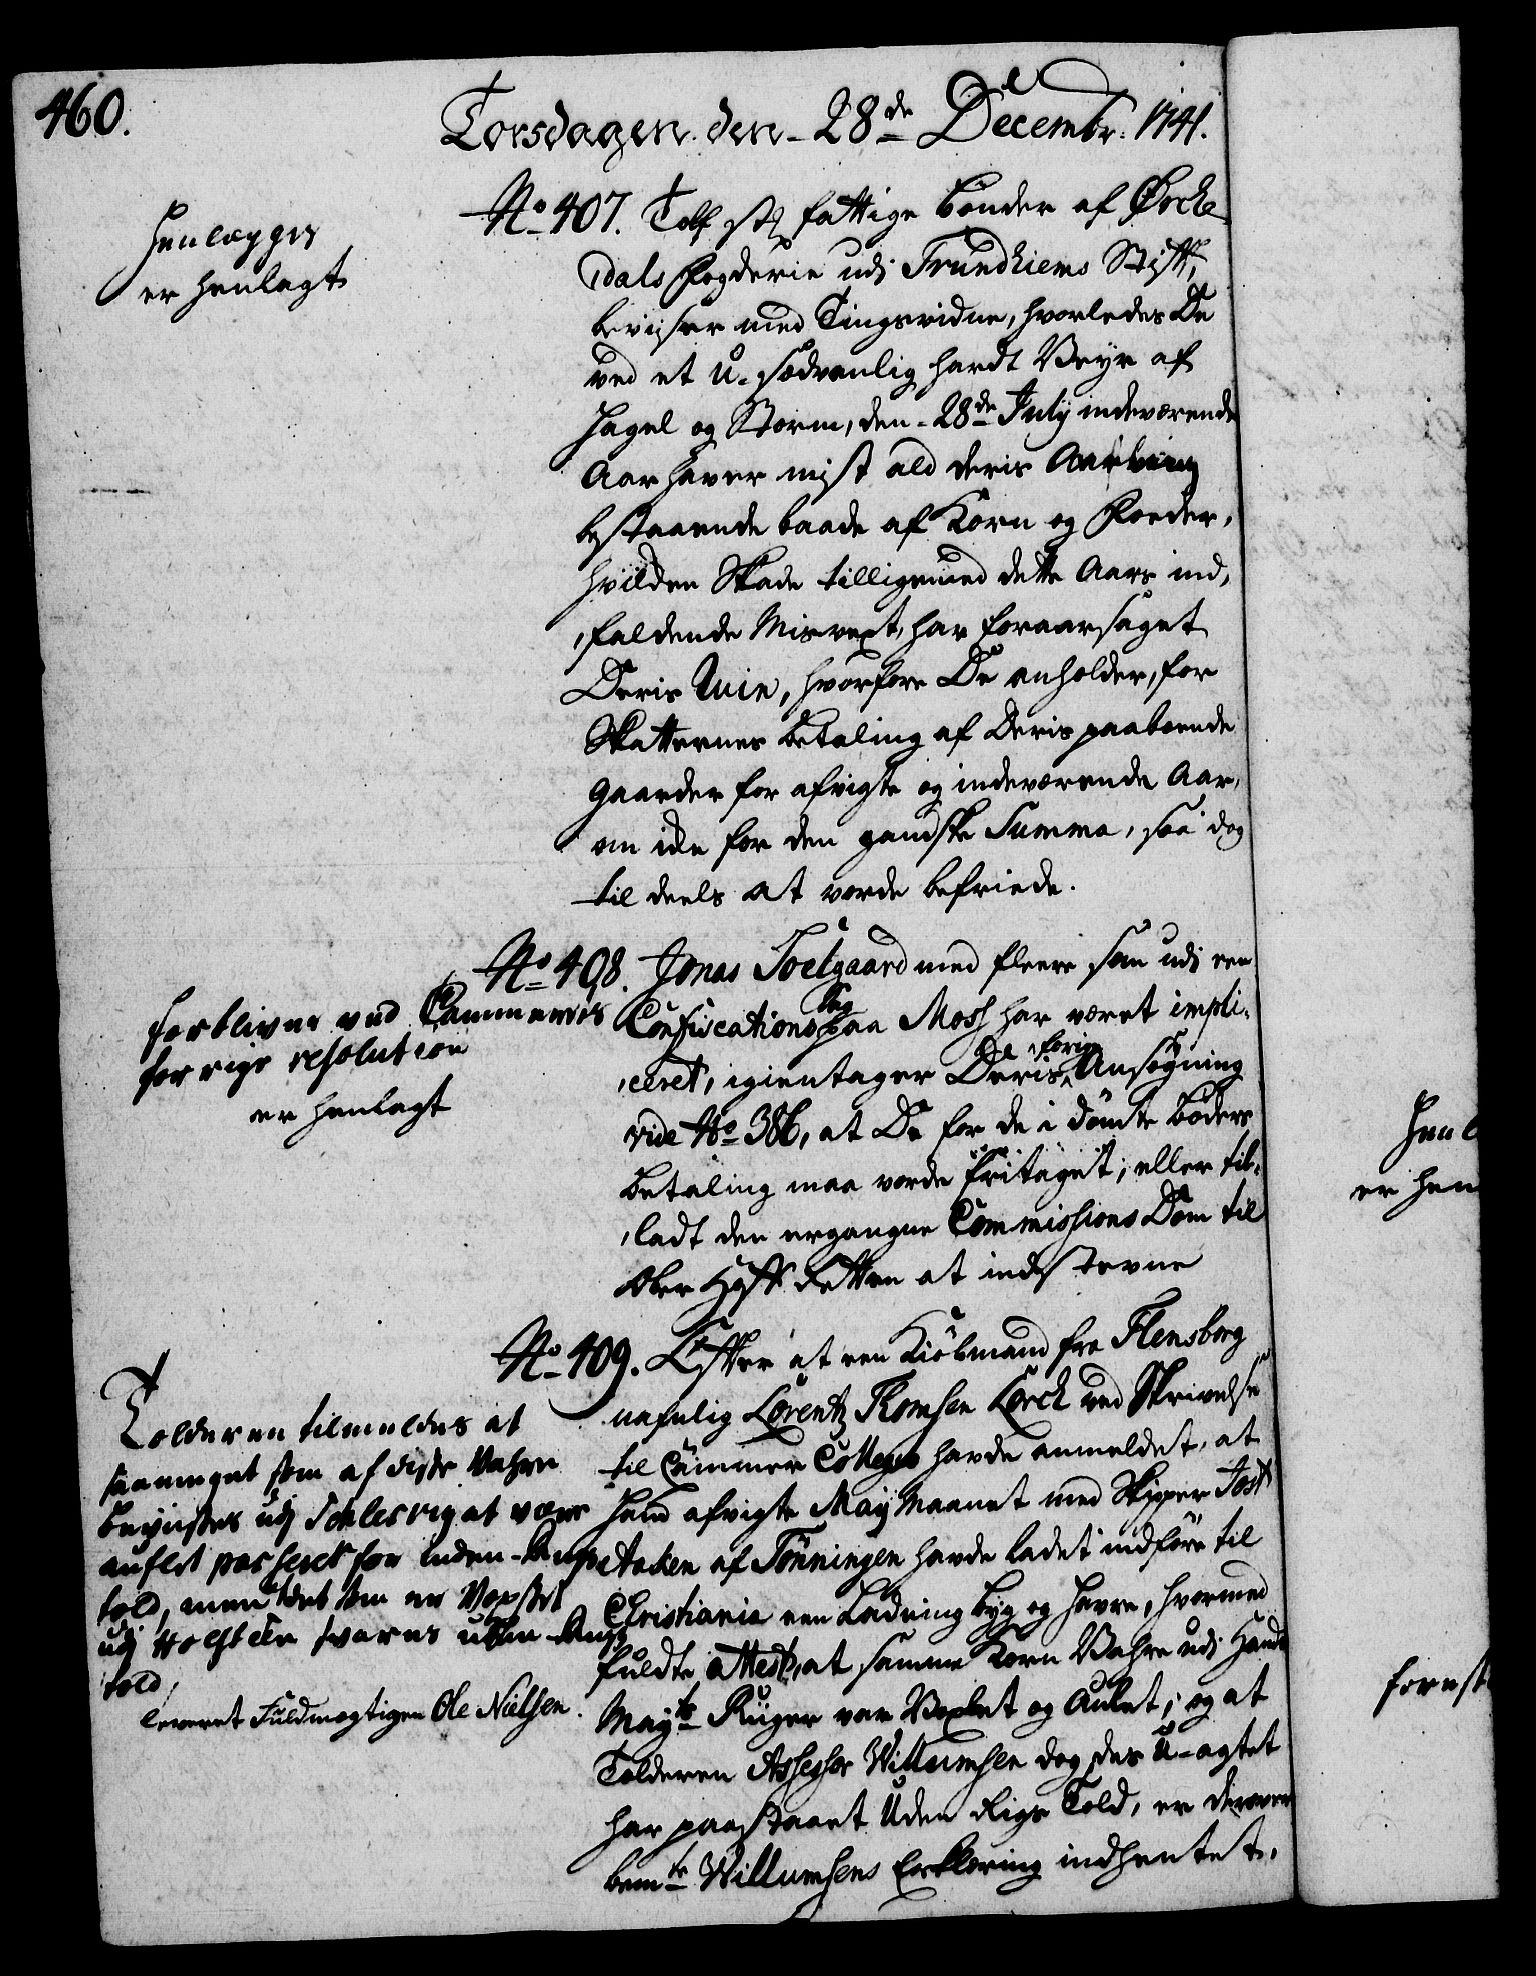 460.
Torsdagen den 28de Decembr: 1741.
Henlægges
er henlagt
No 407. Tolf st: fattige bønder af Ørcke-
dals Fogderie udj Trundhiems Stift,
beviiser med Tingsvidne, hvorledes De
ved et u-sædvanlig hardt Veyr af
Hagel og Storm, den 28de July indeværende
Aar haver mist ald deris Aarwing
bestaaende baade af Korn og Foeder,
hvilden Skade tilligemed dette Aars ind-
faldende Misvext, har foraarsaget
Deris Ruin, hvorfore De anholder, for
Skatternes betaling af Deris paaboende
Gaarder for afvigte og indeværende Aar,
om icke for den gandske Summa, saa dog
til deels at vorde befriede.
forbliver ved Cammerets
forrige resolution
er henlagt
No 408. Jonas Toelgaard med fleere som udj een
Confiscations Sag paa Moss har været impli-
ceret, igientager Deris forrige Ansøgning
vide No 386, at De for de i dømte bøders
betaling maa vorde fritaget, eller til-
ladt den ergangne Commissions Dom til
Ober Hoff Retten at indstevne
Tolderen tilmeldes at
saameget som af disse Vahre
beviises udj Schlesvig at være
aufled passerer for inden-Rigs
told, men det som er Voxset
udj Holsteen svares uden-Rigs
told,
leveret Fuldmægtigen Ole Nielsen.
No 409. Efter at een Kiøbmand fra Flensborg
nafnlig Lorentz Thomsen Lorck ved Skrivelse
til Cammer Collegio havde anmeldet, at
hand afvigte May Maanet med Skipper Jost
Aaken af Tønningen havde ladet indføre til
Christiania een Ladning byg og Havre, hvormed
fuldte attest, at samme Korn Vahre udj Hands
Mayts Riiger var Voxet og Aulet; og at
Tolderen Assessor Willumsen dog des u-agtet
har paastaaet Uden Rigs Told, er derover
bemte Willumsens Erklæring indhentet,
Henl
er hen
forest